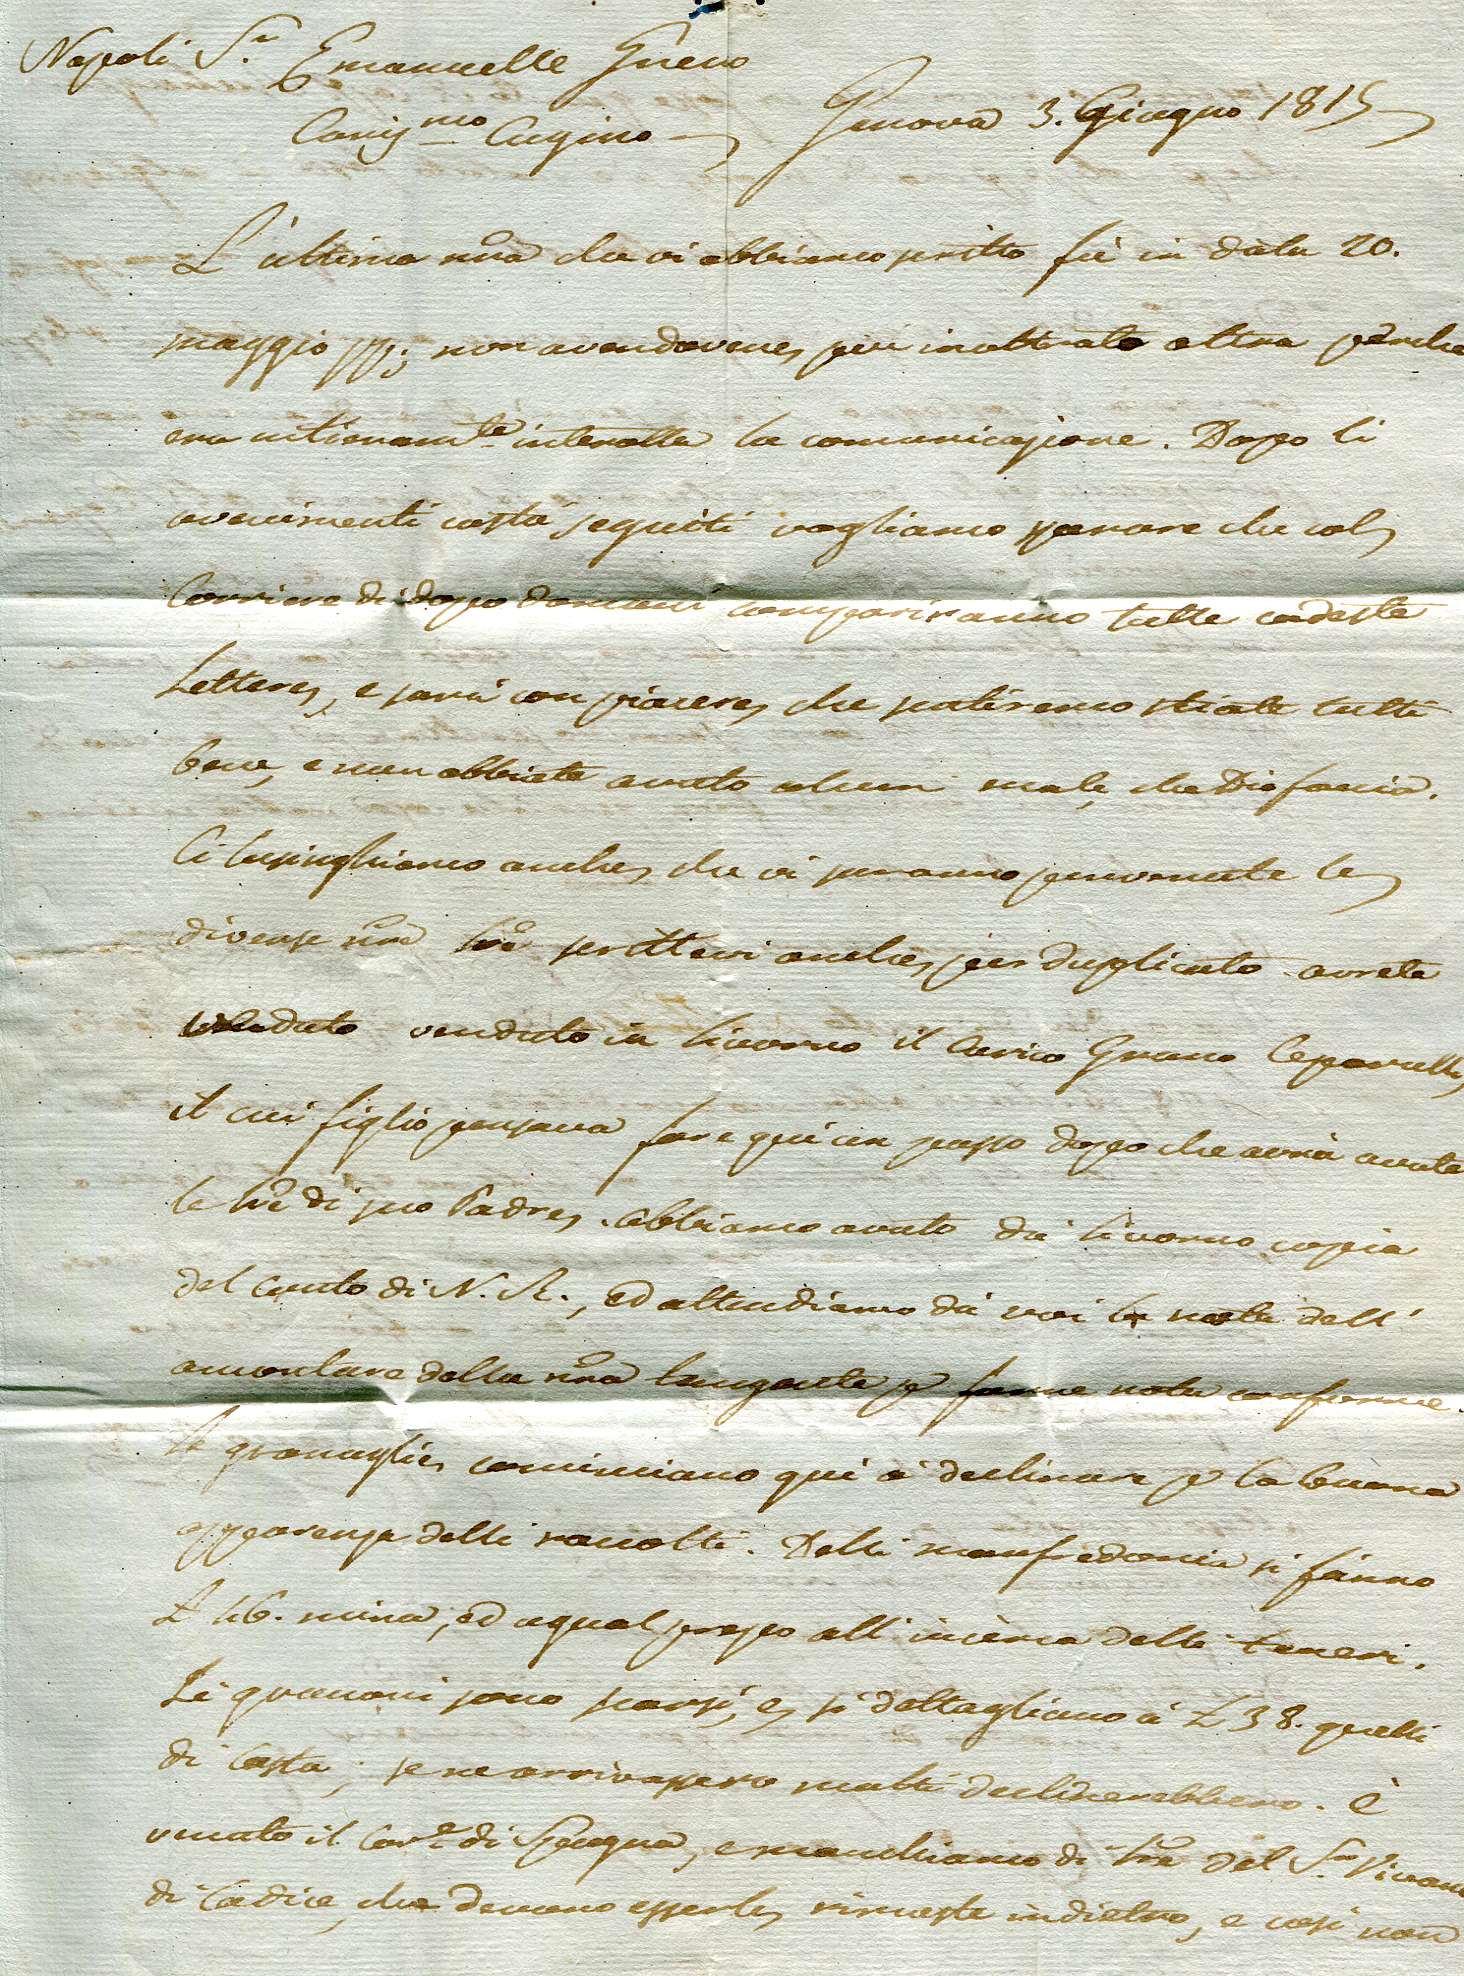 Napoli Sr. Emanuelle
Carismo Cugino Genova 3. Giugno 1815
L'ultima nra che vi abbiamo scritto fù in data 20.
maggio pp; non avendovene più inoltrato altra perche
era intieramte interotta la comunicazione. Dopo li
avenimenti costà seguiti vogliamo sperare che col
Corriere di dopo domani compariranno tutte codeste
Lettere, e sarà con piacere che sentiremo stiate tutti
bene, e non abbiate avuto alcun male, che Dio faccia.
Ci lusinghiamo anche che vi saranno pervenute le
diverse nre lre scrittevi anche per duplicato avrete
veduto venduto in Livorno il Carico Grano
il cui figlio pensava fare quì un passo dopo che avrà avute
le lre di suo Padre. Abbiamo avuto da Livorno copia
del Conto di N. R., ed attendiamo da voi la nota dell'
amontare della nra tangente p farne nota conforme.
Le granaglie cominciano quì a declinare p la buona
apparenza delli racolti. Delli manfredonia si fanno
£ 46. mina, ed a qual prezzo all'incirca delli teneri.
Li granoni sono scarsi, e si dettagliano a £ 38. quelli
di Costa; se ne arrivassero molti declinerebbero. È
venuto il Corre di Spagna, e manchiamo di lre del Sr.
di Cadice, che devono essere rimaste indietro, e così non